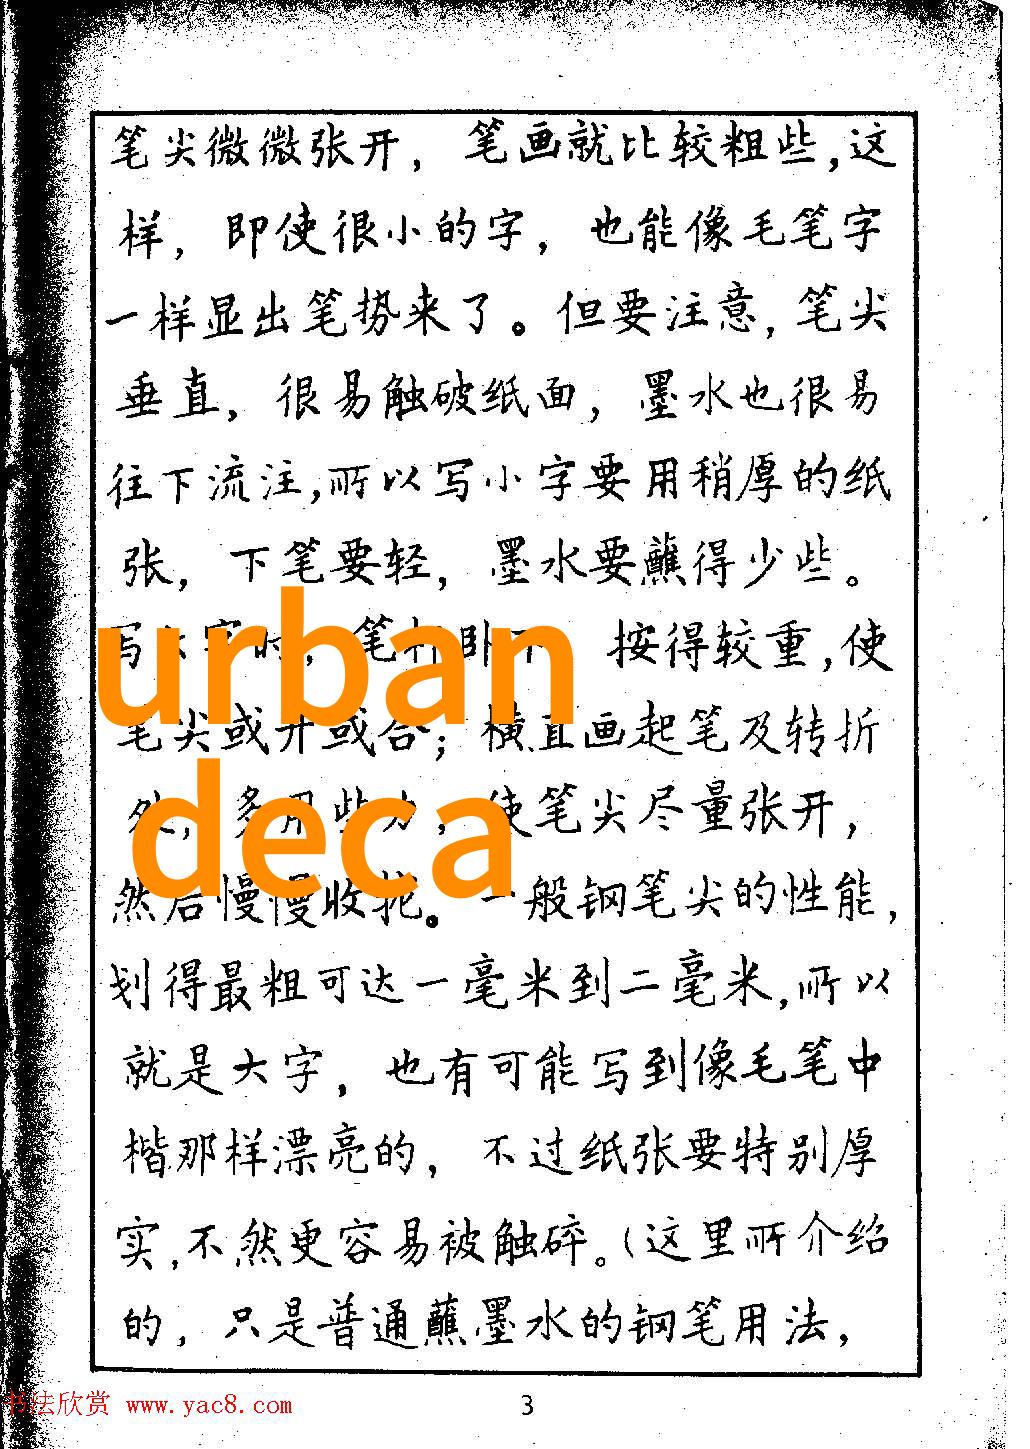 笔尖微微张开，笔画就比较粗些，这
样，即使很小的字，也能像毛笔字
一样显出笔势来了。但要注意，笔尖
垂直，很易触破纸面，墨水也很易
往下流注，所以写小字要用稍厚的纸
张，下笔要轻，墨水要蘸得少些。
写 字时，笔杆卧下 按得较重，使
urban
笔尖或开或合；横直画起笔及转折
处，多用些力，使笔尖尽量张开，
deca
然后慢慢收拢。一般钢笔尖的性能，
划得最粗可达一毫米到二毫米，所以
就是大字，也有可能写到像毛笔中
楷那样漂亮的，不过纸张要特别厚
实，不然更容易被触碎。（这里所介绍
的，只是普通蘸墨水的钢笔用法，
书法欣赏 www.yac8.com
3